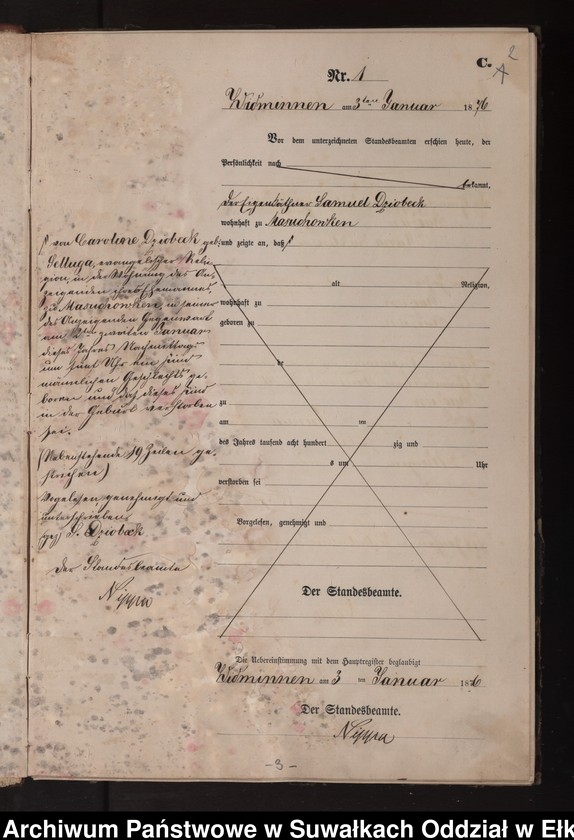 C.
2
Nr. 1
Widminnen am 3ten Januar 1876
Vor dem unterzeichneten Standesbeamten erschien heute, der
Persönlichkeit nach
bekannt,
der Eigenkäthner Samuel Dziobeck
wohnhaft zu Masuchowken
und zeigte an, daß
von Caroline Dziobeck geb.
evangelischer Reli-
gion, in der Wohnung des An-
zeigenden ihres Ehemannes
zu Masuchowken, in seiner
des Anzeigenden Gegenwart
am 2ten zweiten Januar
dieses Jahres Nachmittags
um fünf Uhr ein Kind
männlichen Geschlechts ge-
boren und daß dieses Kind
in der Geburt verstorben
sei.
(Nebenstehende 19 Zeilen ge-
strichen)
Vorgelesen genehmigt und
unterschrieben
gez. S. Dziobeck
Der Standesbeamte
Nippa
alt Religion,
wohnhaft zu
geboren zu
de
zu
am um
des Jahres tausend acht hundert zig und
s um Uhr
verstorben sei
Vorgelesen, genehmigt und
Der Standesbeamte.
Die Uebereinstimmung mit dem Hauptregister beglaubigt
Widminnen am 3 ten Januar 1876
Der Standesbeamte.
Nippa
- 3 -
Archiwum Państwowe w Suwałkach Oddział w Ełk